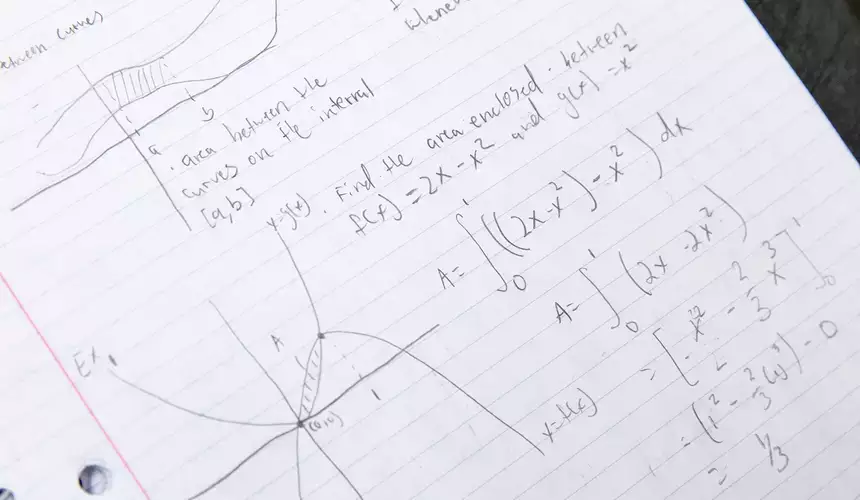 between curves
a
b
. area between the
curves on the interval
[a,b]
. Find the area enclosed between
f(x) = 2x - x² and g(x) = x²
A = ∫₀¹ ((2x - x²) - x²) dx
A = ∫₀¹ (2x - 2x²)
= (1² - 2/3 (1)³) - 0
= 1/3
Ex.
y=g(x)
A
1
(0,0)
y=f(x)